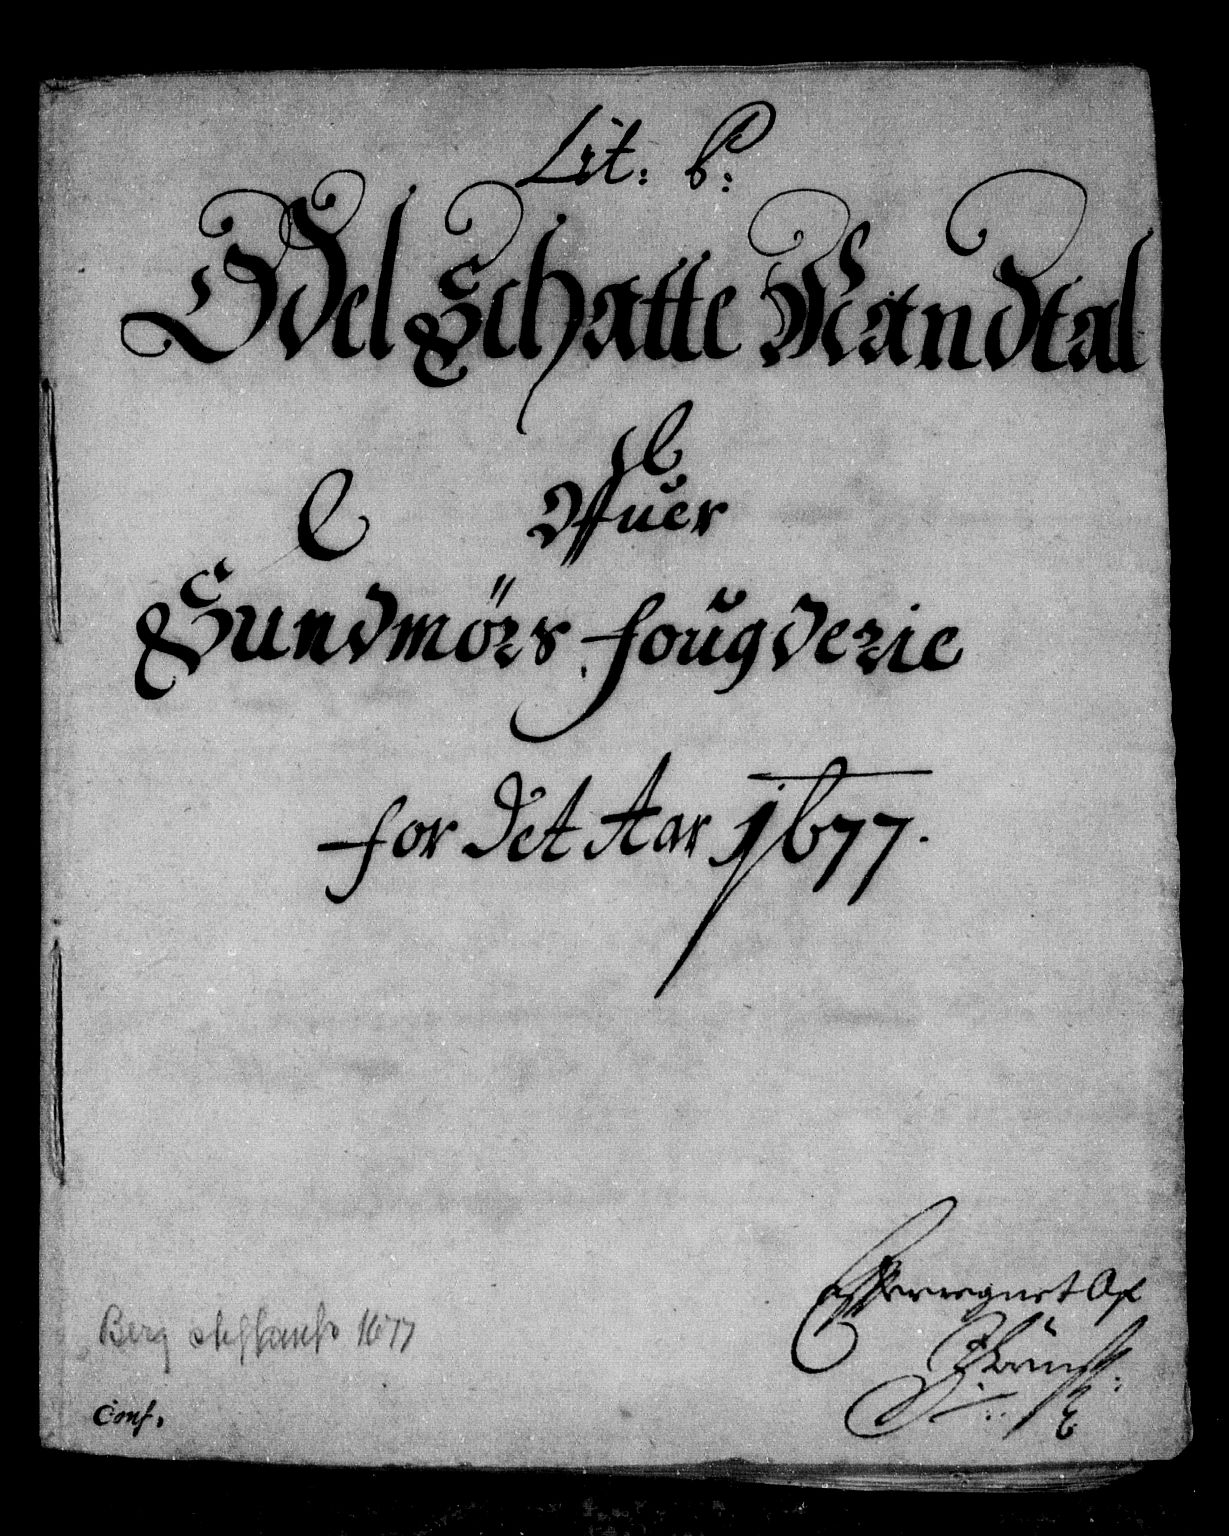 Lit: B:
Odel Schatte Mandtal
Offuer
Sundmörs fougderie
for det Aar 1677.
Efferregnet Af
Berg 1677
Conf.